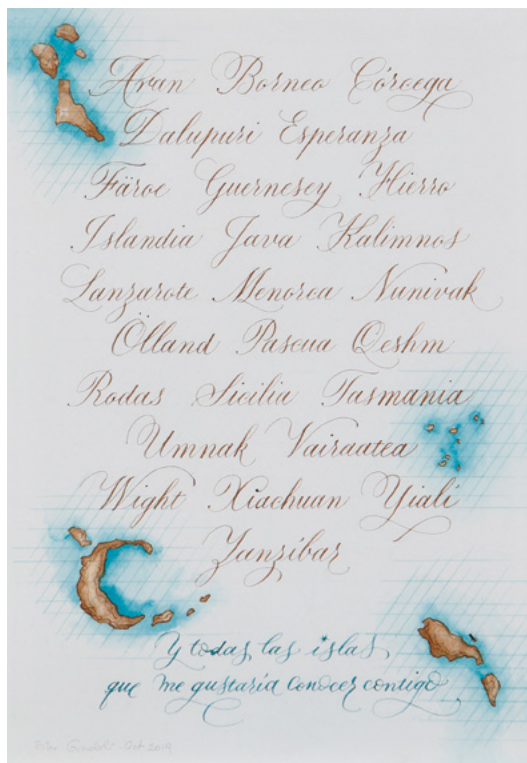 Aran Borneo Córcega
Dalupuri Esperanza
Färoe Guernesey Hierro
Islandia Java Kalimnos
Lanzarote Menorca Nunivak
Ölland Pascua Qeshm
Rodas Sicilia Tasmania
Umnak Vairaatea
Wight Xiachuan Yiali
Zanzíbar
Y todas las islas
que me gustaría conocer contigo
Oct 2019